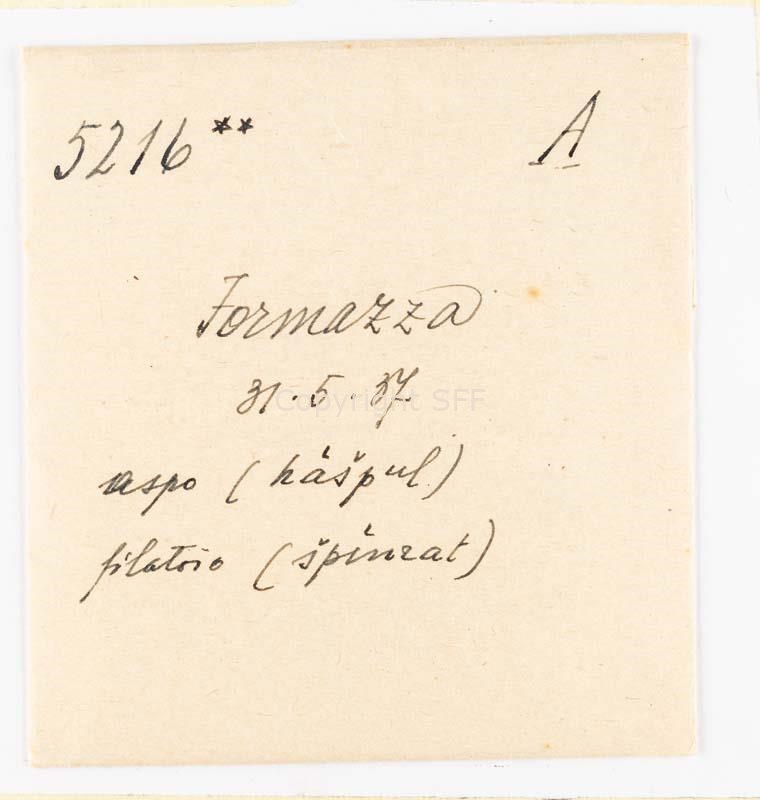 5216** A
Formazza
31.5.37
Copyright SFF
aspo (hášpul)
filatoio (špínrat)